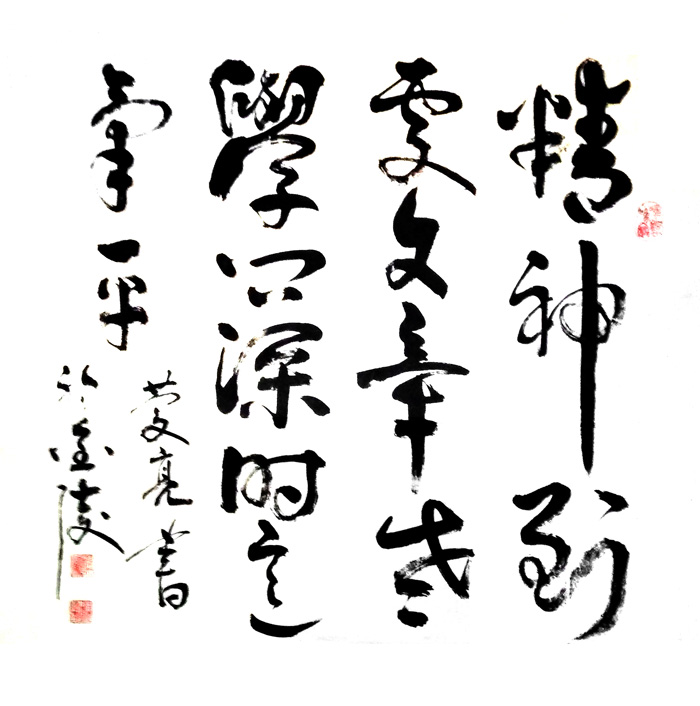 精神到
處文章老
學問深時意
氣平
亮書
於金陵